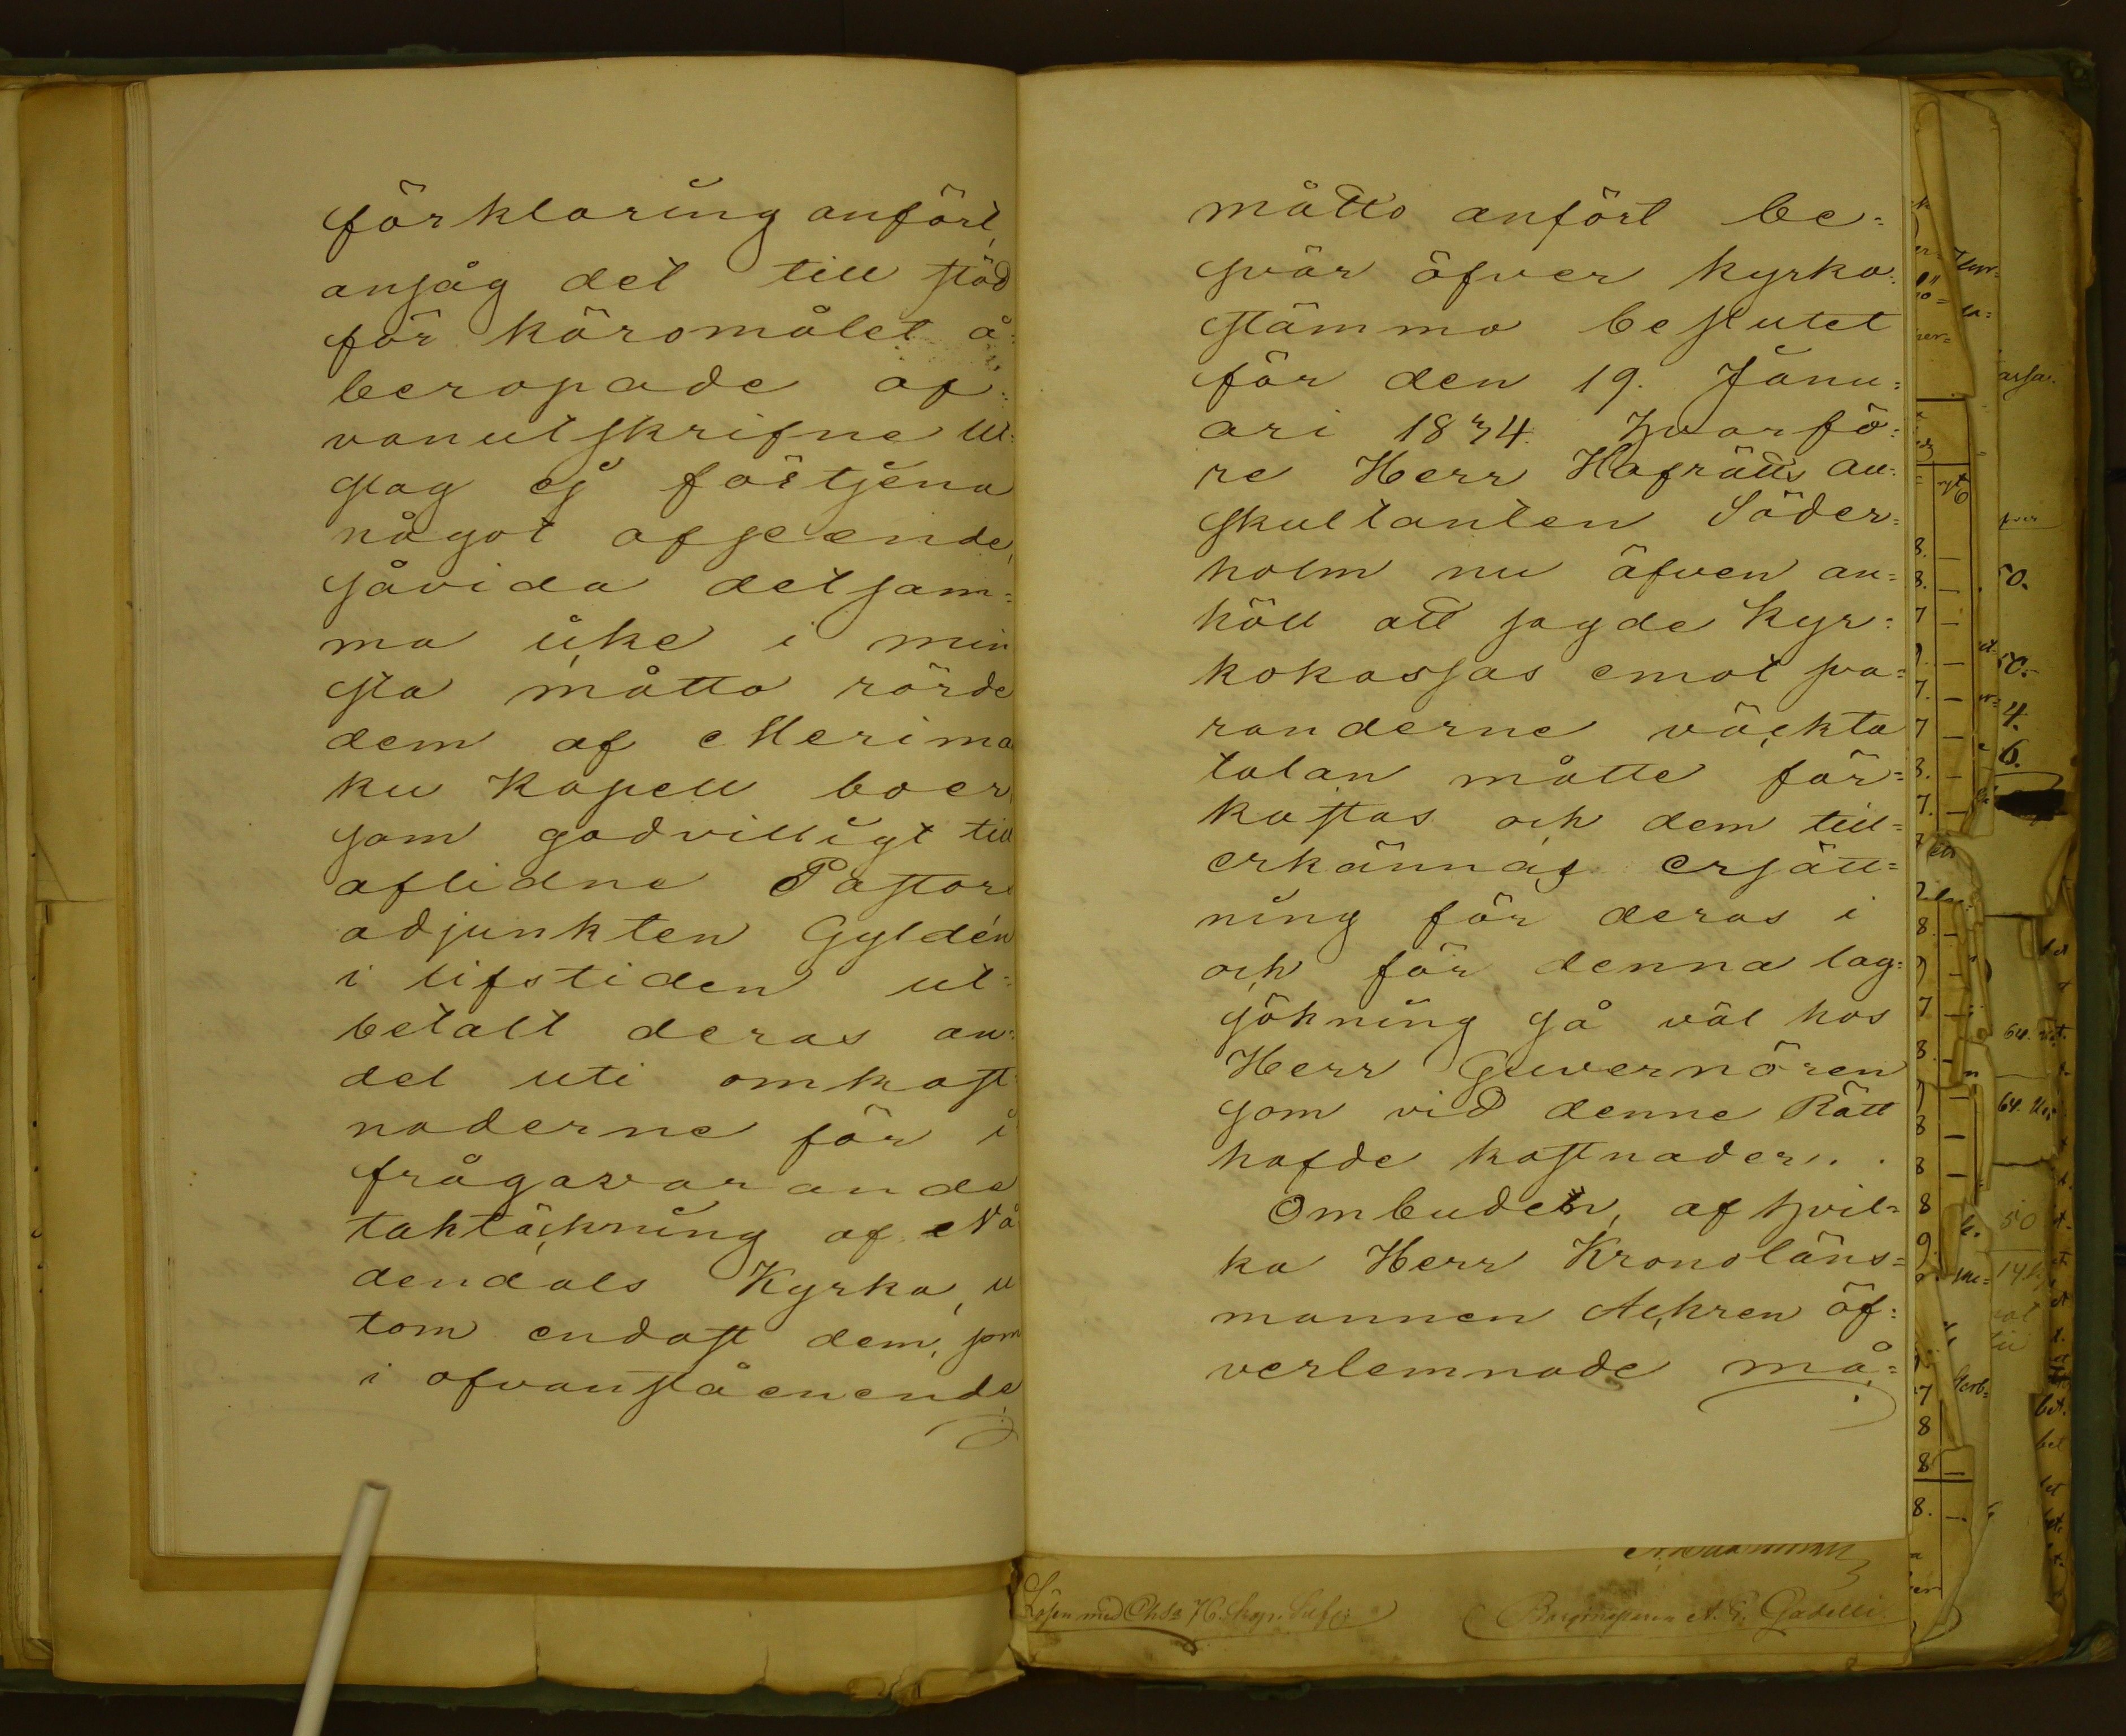 förklaring anfört,
ansåg det till stöd
för käromålet å=
beropade of=
vanutskrifne ut=
slag ej förtjena
något afseende,
såvida detsam=
ma icke i min
sta måtto rörde
dem af Merima
ku Kapell boer
som godvilligt till
aflidne Pastors
adjunkten Gyldén
i lifstiden ut=
betalt deras an=
del uti omkost
naderne för i
frågavarande
taktäckning af Nå
dendals Kyrka, u
tom endast dem, som
i ofvanståenende
måtto anfört be=
svär öfver kyrko=
stämmo beslutet
för den 19. Janu=
ari 1874. hvarfö=
re Herr Hofrätts au=
skultanten Söder=
holm nu äfven an=
höll att sagde kyr=
kokassas emot sva=
randerne väckta
talan måtte för=
kastas och dem till=
erkännas ersätt=
ning för deras i
och för denna lag=
sökning så väl hos
Herr Guvernören
som vid denne Rätt
hafde kostnader.
Ombuden, af hvil=
ka Herr Kronoläns=
mannen Ackren öf=
verlemnade må=